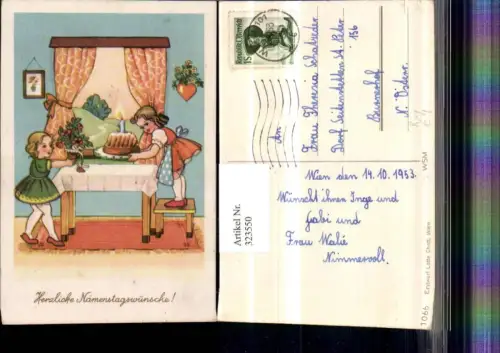 Herzliche Namenstagswünsche!
Artikel Nr.
323550
An
Frau Theresia
Dorf Seitenstetten St. Peter
156
N. Österr.
Wien den 14.10.1953.
Wünscht ihnen Inge und
Gabi und
Frau Walie
Nimmervoll.
WSM
1066